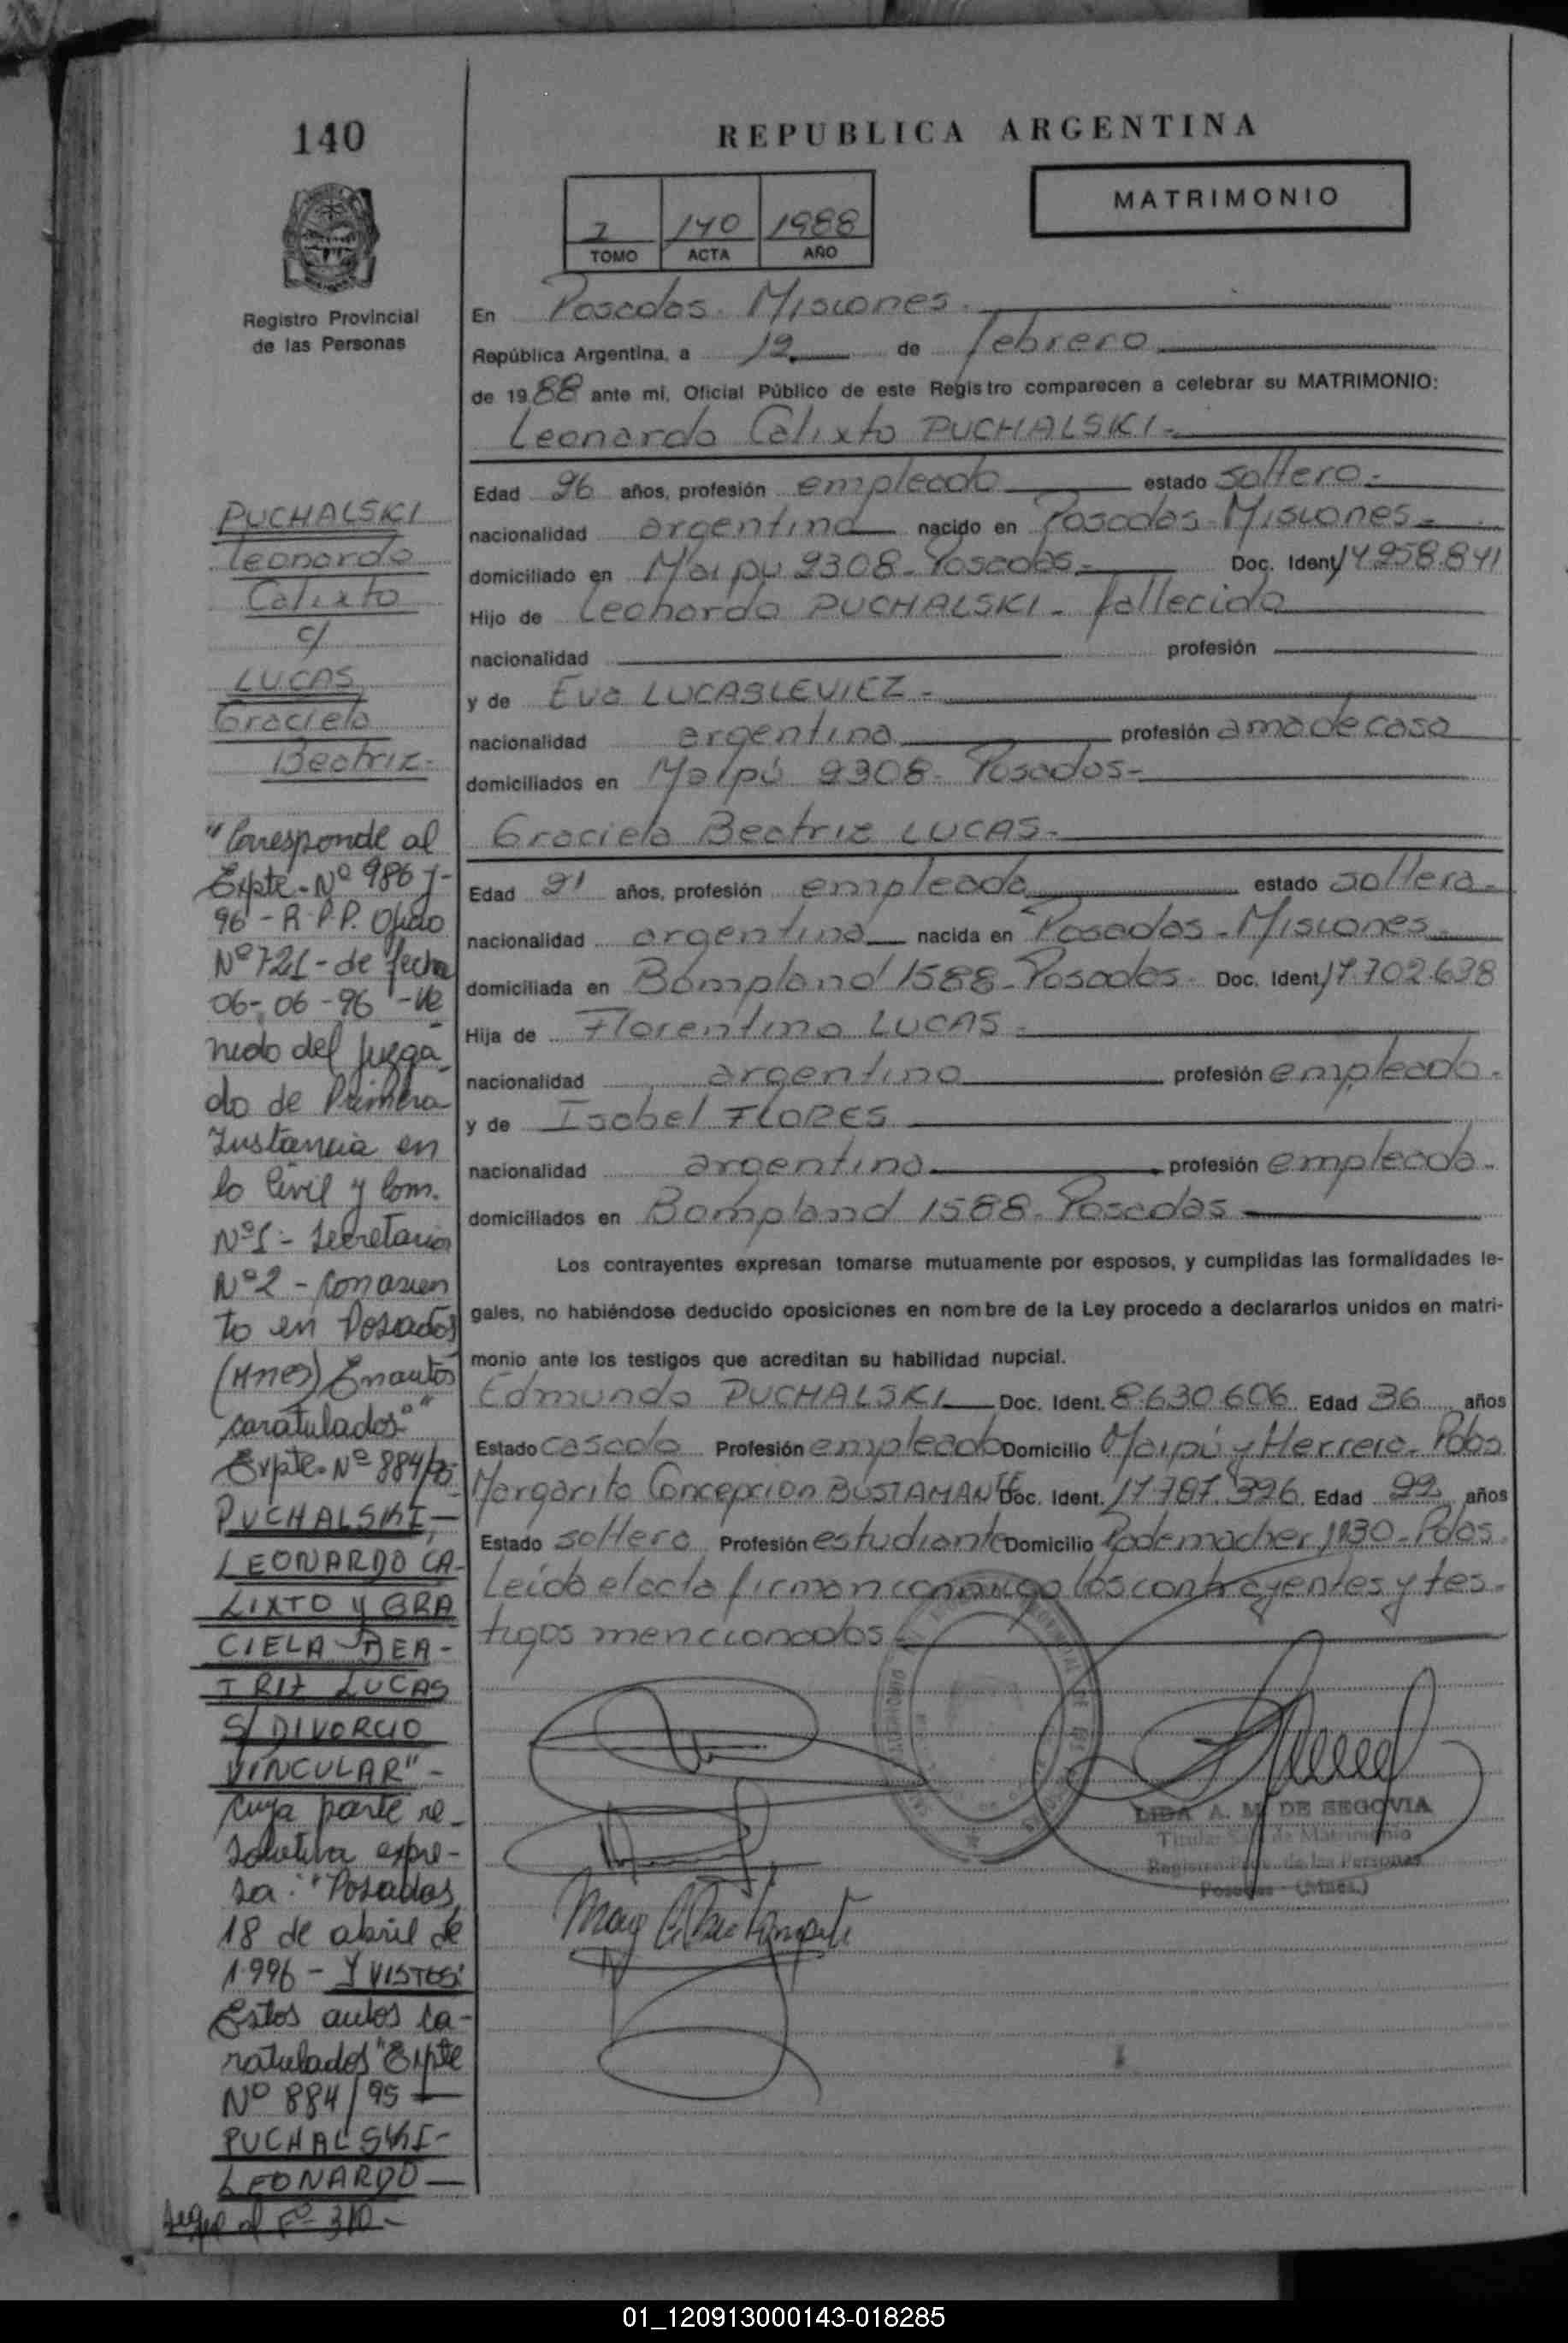 140
REPUBLICA ARGENTINA
MATRIMONIO
140 1988
TOMO ACTA AÑO
Registro Provincial
de las Personas
En Posadas - Misiones -
República Argentina, a 12 de febrero
de 1988 ante mí, Oficial Público de este Registro comparecen a celebrar su MATRIMONIO:
Leonardo Calixto PUCHALSKI -
Edad 26 años, profesión empleado estado soltero -
nacionalidad argentina nacido en Posadas - Misiones -
domiciliado en Maipú 2308 - Posadas - Doc. Ident. 14.958.841
Hijo de Leonardo PUCHALSKI - fallecido
nacionalidad profesión
y de Eva LUCASLEVIEZ -
nacionalidad argentina profesión ama de casa
domiciliados en Maipú 2308 - Posadas -
Graciela Beatriz LUCAS -
Edad 21 años, profesión empleada estado soltera -
nacionalidad argentina nacida en Posadas - Misiones
domiciliada en Bompland 1588 - Posadas - Doc. Ident. 17.702.638
Hija de Florentino LUCAS -
nacionalidad argentino profesión empleado -
y de Isabel FLORES
nacionalidad argentina profesión empleada -
domiciliados en Bompland 1588 - Posadas
Los contrayentes expresan tomarse mutuamente por esposos, y cumplidas las formalidades le-
gales, no habiéndose deducido oposiciones en nombre de la Ley procedo a declararlos unidos en matri-
monio ante los testigos que acreditan su habilidad nupcial.
Edmundo PUCHALSKI Doc. Ident. 8.630.606 Edad 36 años
Estado casado Profesión empleado Domicilio Maipú y Herrera - Pdas
Margarita Concepción BUSTAMANTE Doc. Ident. 17.787.326 Edad 22 años
Estado soltera Profesión estudiante Domicilio Rademacher 1130 - Pdas.
Leída el acta firman conmigo los contrayentes y tes-
tigos mencionados
LIDA A. M. DE SEGOVIA
Titular Sec. de Matrimonio
Registro Prov. de las Personas
Posadas - (Mnes.)
PUCHALSKI
Leonardo
Calixto
c/
LUCAS
Graciela
Beatriz -
"Corresponde al
Expte. Nº 986 J-
96 - R.P.P. Oficio
Nº 721 - de fecha
06-06-96 - ve
nido del Juzga
do de Primera
Instancia en
lo Civil y Com.
Nº 1 - Secretaria
Nº 2 - con asien
to en Posadas
(Mnes) En autos
caratulados:"
Expte. Nº 884/95
PUCHALSKI, -
LEONARDO CA-
LIXTO y GRA
CIELA BEA-
TRIZ LUCAS
S/ DIVORCIO
VINCULAR" -
Cuya parte re-
solutiva expre-
sa: "Posadas,
18 de abril de
1.996 - Y VISTOS:
Estos autos ca-
ratulados "Expte
Nº 884/95 -
PUCHALSKI -
LEONARDO -
Sigue al Fº 310 -
01_120913000143-018285